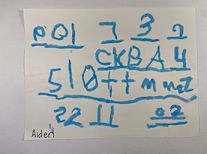 PO1 7 3 2
CKBA4
510tt m
22 11 02
Aiden